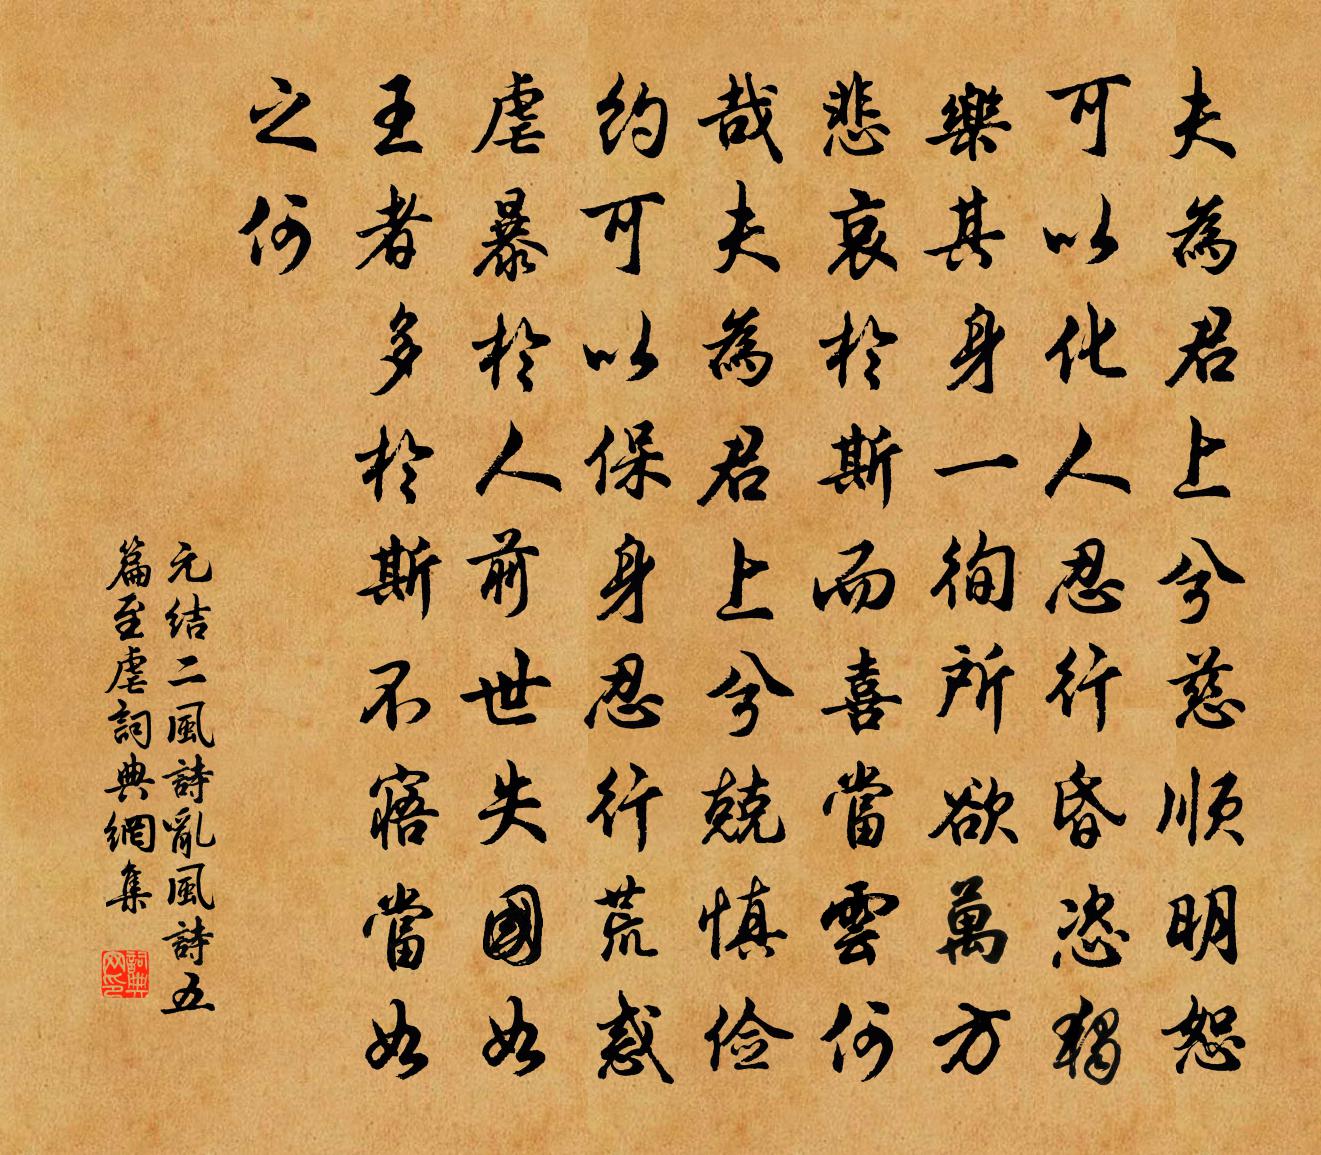 夫為君上兮慈順明恕
可以化人忍行昏恣獨
樂其身一徇所欲萬方
悲哀於斯而喜當雲何
哉夫為君上兮兢慎儉
約可以保身忍行荒惑
虐暴於人前世失國如
王者多於斯不寤當如
之何
元结二風詩亂風詩五
篇至虐詞典網集
詞典网印